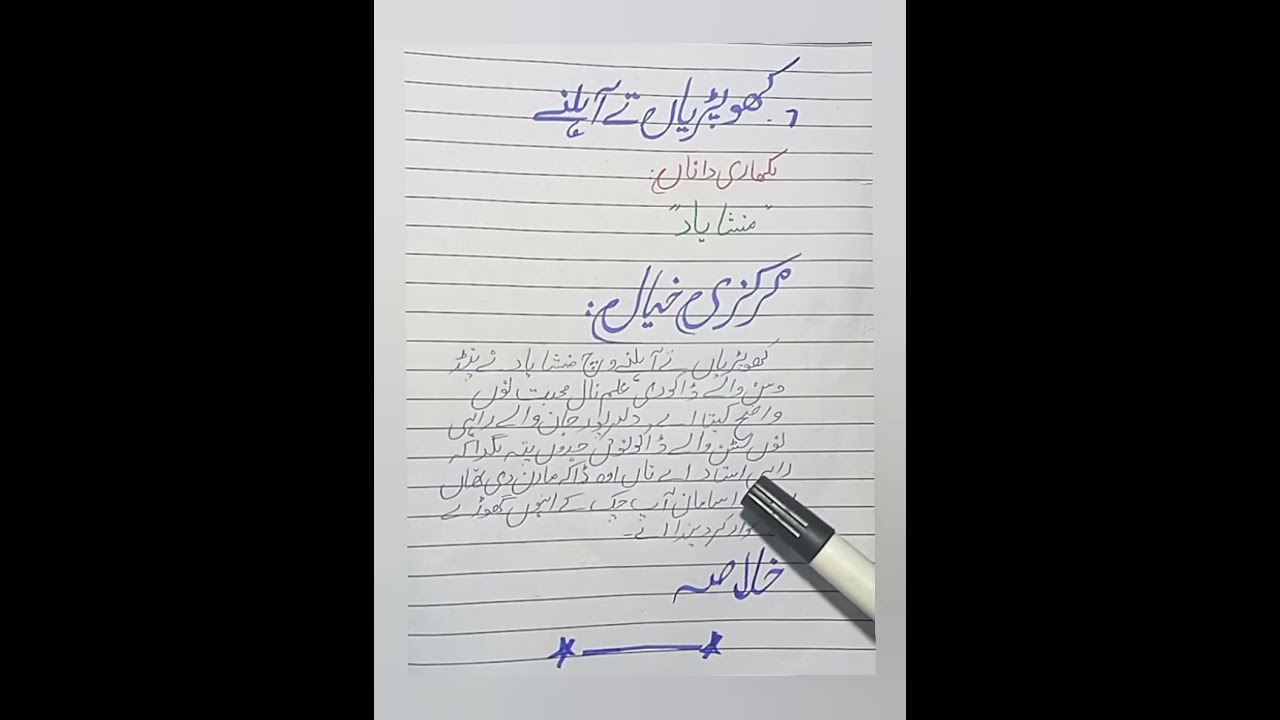 کھوپڑیاں تے آہلنے
لکھاری دا ناں:
"منشا یاد"
مرکزی خیال:
کھوپڑیاں تے آہلنے وچ منشا یاد نے پنڈ
وسن والے ڈاکو دی علم نال محبت نوں
واضح کیتا اے۔ جان والے راہی
نوں لٹن والے ڈاکو نوں جدوں پتہ لگدا کہ
راہی استاد اے تاں اوہ ڈاکہ مارن دی تھاں
سامان آپ چک کے اینوں گھوڑے تے
سوار کر دیندا اے۔
خلاصہ